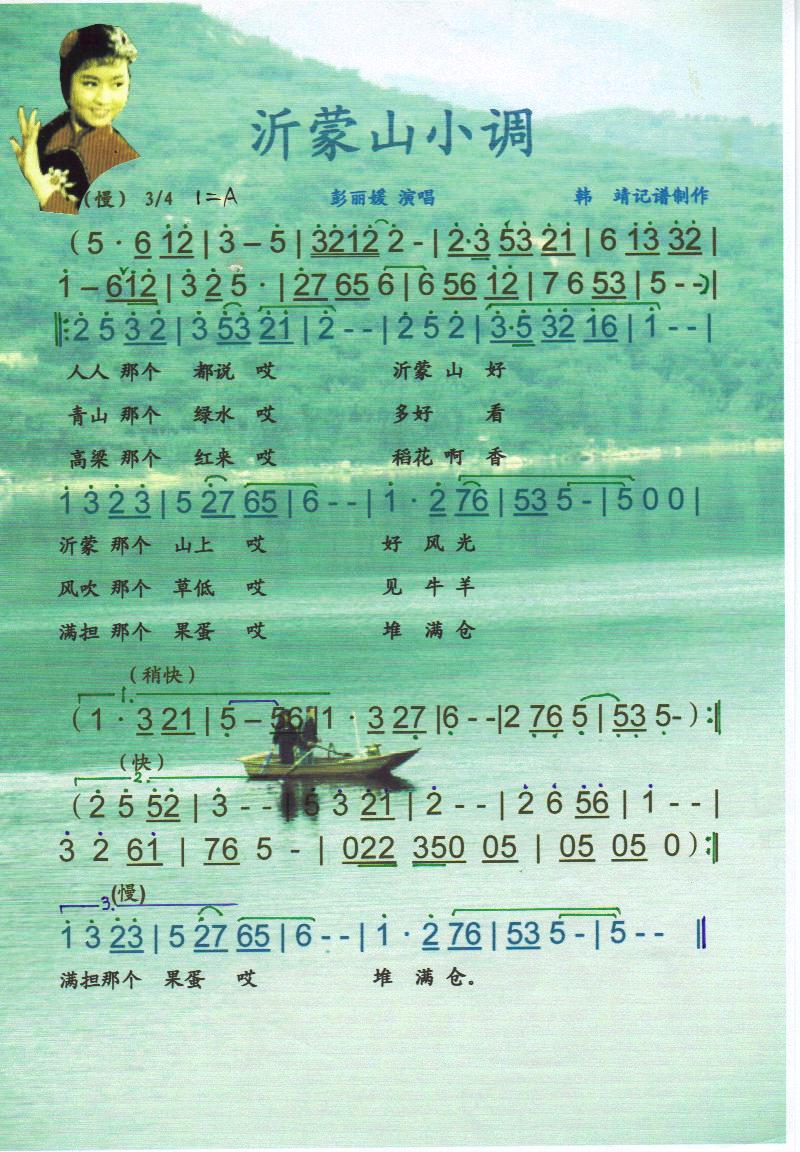 沂蒙山小调
（慢） 3/4 1=A 彭丽媛 演唱 韩 靖记谱制作
（5 · 6 12 | 3 – 5 | 3212 2 - | 2·3 53 21 | 6 13 32 |
1 – 612 | 3 2 5 · | 27 65 6 | 6 56 12 | 7 6 53 | 5 - -）|
‖: 2 5 3 2 | 3 53 21 | 2 - - | 2 5 2 | 3·5 32 16 | 1 - - |
人人 那个 都说 哎 沂蒙 山 好
青山 那个 绿水 哎 多好 看
高梁 那个 红来 哎 稻花 啊 香
1 3 2 3 | 5 27 65 | 6 - - | 1 · 2 76 | 53 5 - | 5 0 0 |
沂蒙 那个 山上 哎 好 风 光
风吹 那个 草低 哎 见 牛 羊
满担 那个 果蛋 哎 堆 满 仓
（稍快）
1.
（1 · 3 21 | 5 – 56 | 1 · 3 27 | 6 - - | 2 76 5 | 53 5 -）:‖
（快）
2.
（2 5 52 | 3 - - | 5 3 21 | 2 - - | 2 6 56 | 1 - - |
3 2 61 | 76 5 - | 022 350 05 | 05 05 0）:‖
3. (慢)
1 3 23 | 5 27 65 | 6 - - | 1 · 2 76 | 53 5 - | 5 - - ‖
满担那个 果蛋 哎 堆 满 仓。